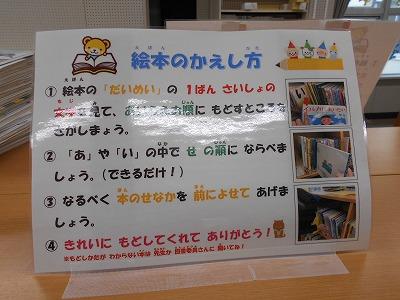 絵本のかえし方
① 絵本の「だいめい」の 1ばん さいしょの
見て、
に もどすところを
さがしましょう。
② 「あ」や「い」の中で せの順に ならべま
しょう。(できるだけ!)
③ なるべく 本のせなかを 前によせて あげま
しょう。
④ きれいに もどしてくれて ありがとう!
※もどしかたが わからない本は 先生か 図書委員さんに 聞いてね!